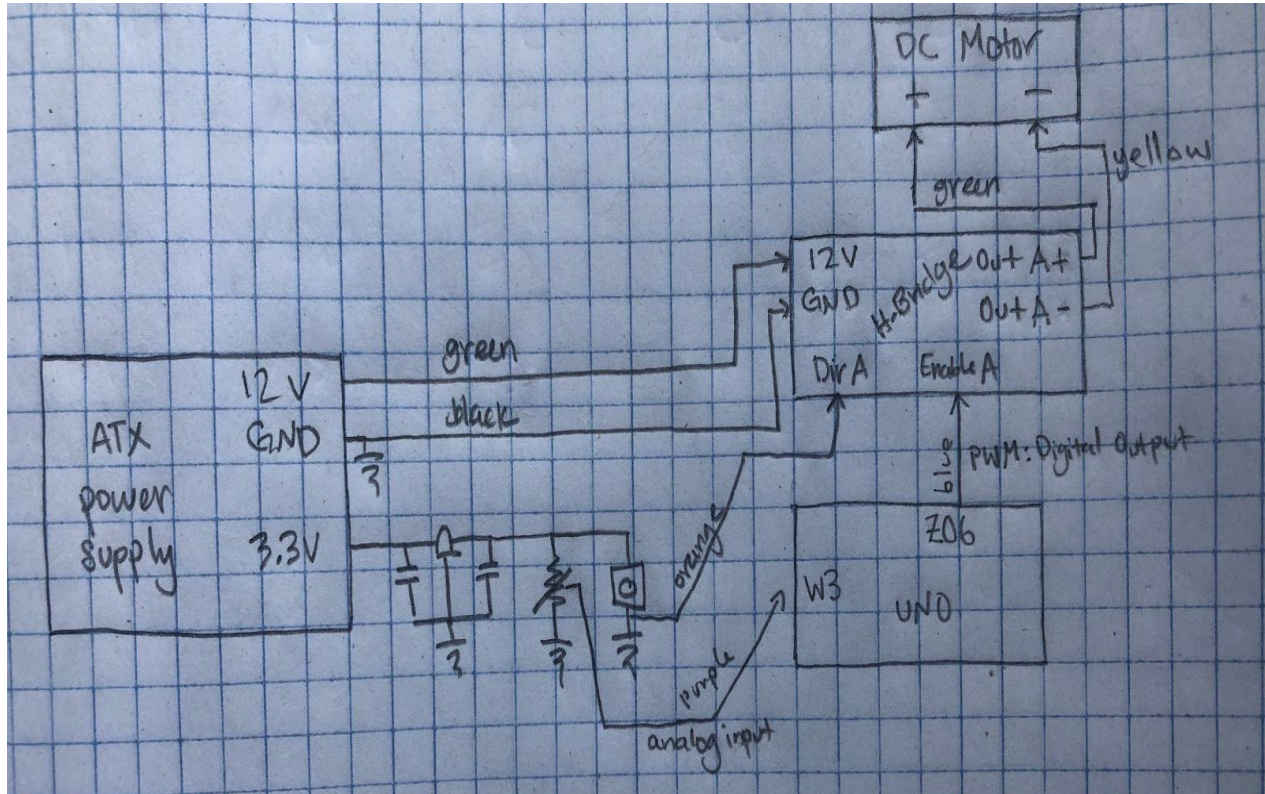 DC Motor
+ -
yellow
green
12V
H-Bridge
Out A+
GND
Out A-
Dir A
Enable A
green
12 V
black
ATX
GND
power
supply
3.3V
blue
PWM: Digital Output
orange
Z06
W3
UNO
purple
analog input